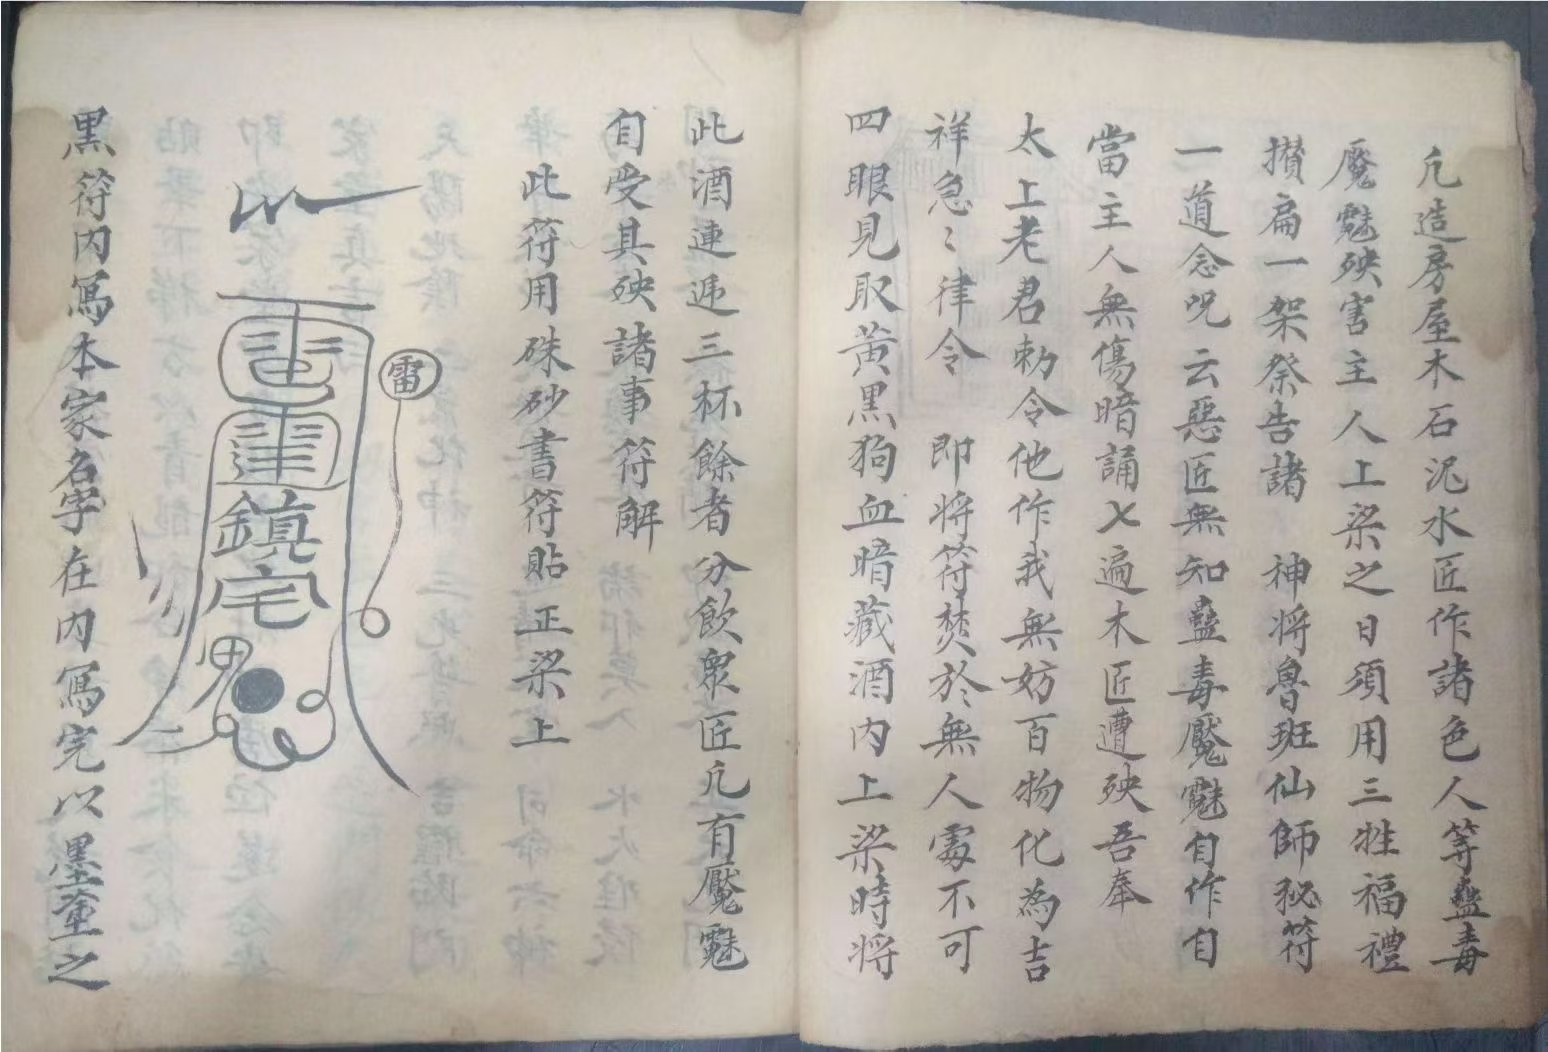 凢造房屋木石泥水匠作諸色人等蠱毒
魘魅殃害主人上梁之日須用三牲福禮
攅扁一架祭告諸 神將魯班仙師秘符
一道念咒云惡匠無知蠱毒魘魅自作自
當主人無傷暗誦乂遍木匠遭殃吾奉
太上老君勅令他作我無妨百物化為吉
祥急〻律令 即將符焚於無人處不可
四眼見取黃黑狗血暗藏酒内上梁時將
此酒連逓三杯餘者分飲衆匠凢有魘魅
自受其殃諸事符解
此符用硃砂書符貼正梁上
雷
鎮宅
黑符内寫本家名字在内寫完以墨塗之